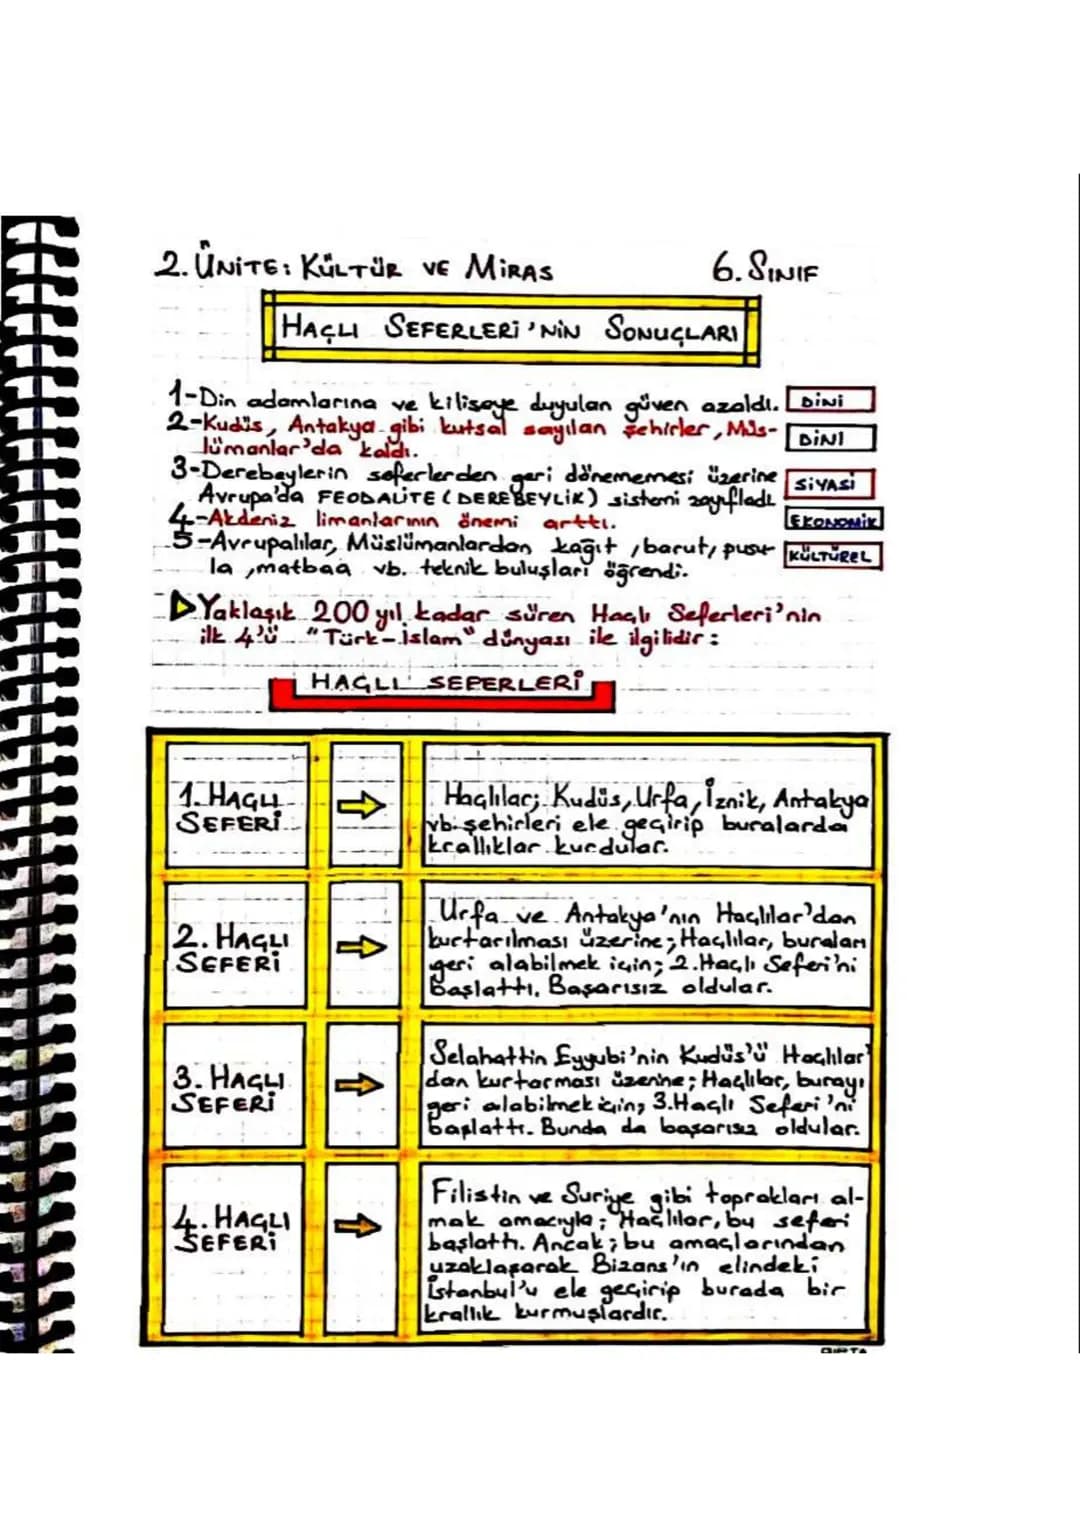 2. ÜNİTE: KÜLTÜR VE MİRAS
6. SINIF
HAÇLI SEFERLERİ'NİN SONUÇLARI
1-Din adamlarına ve kiliseye duyulan güven azaldı.
DİNİ
2-Kudüs, Antakya gibi kutsal sayılan şehirler, Müs-
lümanlar'da kaldı.
DİNİ
3-Derebeylerin seferlerden geri dönememesi üzerine
Avrupa'da FEODALİTE (DEREBEYLİK) sistemi zayıfladı
SİYASİ
4-Akdeniz limanlarının önemi arttı.
EKONOMİK
5-Avrupalılar, Müslümanlardan kağıt, barut, pusu-
la, matbaa vb. teknik buluşları öğrendi.
KÜLTÜREL
Yaklaşık 200 yıl kadar süren Haçlı Seferleri'nin
ilk 4'ü "Türk-İslam" dünyası ile ilgilidir:
HAÇLI SEFERLERİ
1. HAÇLI
SEFERİ
Haçlılar; Kudüs, Urfa, İznik, Antakya
vb. şehirleri ele geçirip buralarda
krallıklar kurdular.
2. HAÇLI
SEFERİ
Urfa ve Antakya'nın Haçlılar'dan
kurtarılması üzerine; Haçlılar, buraları
geri alabilmek için; 2. Haçlı Seferi'ni
Başlattı. Başarısız oldular.
3. HAÇLI
SEFERİ
Selahattin Eyyubi'nin Kudüs'ü Haçlılar'
dan kurtarması üzerine; Haçlılar, burayı
geri alabilmek için; 3. Haçlı Seferi'ni
başlattı. Bunda da başarısız oldular.
4. HAÇLI
SEFERİ
Filistin ve Suriye gibi toprakları al-
mak amacıyla; Haçlılar, bu seferi
başlattı. Ancak; bu amaçlarından
uzaklaşarak Bizans'ın elindeki
İstanbul'u ele geçirip burada bir
krallık kurmuşlardır.